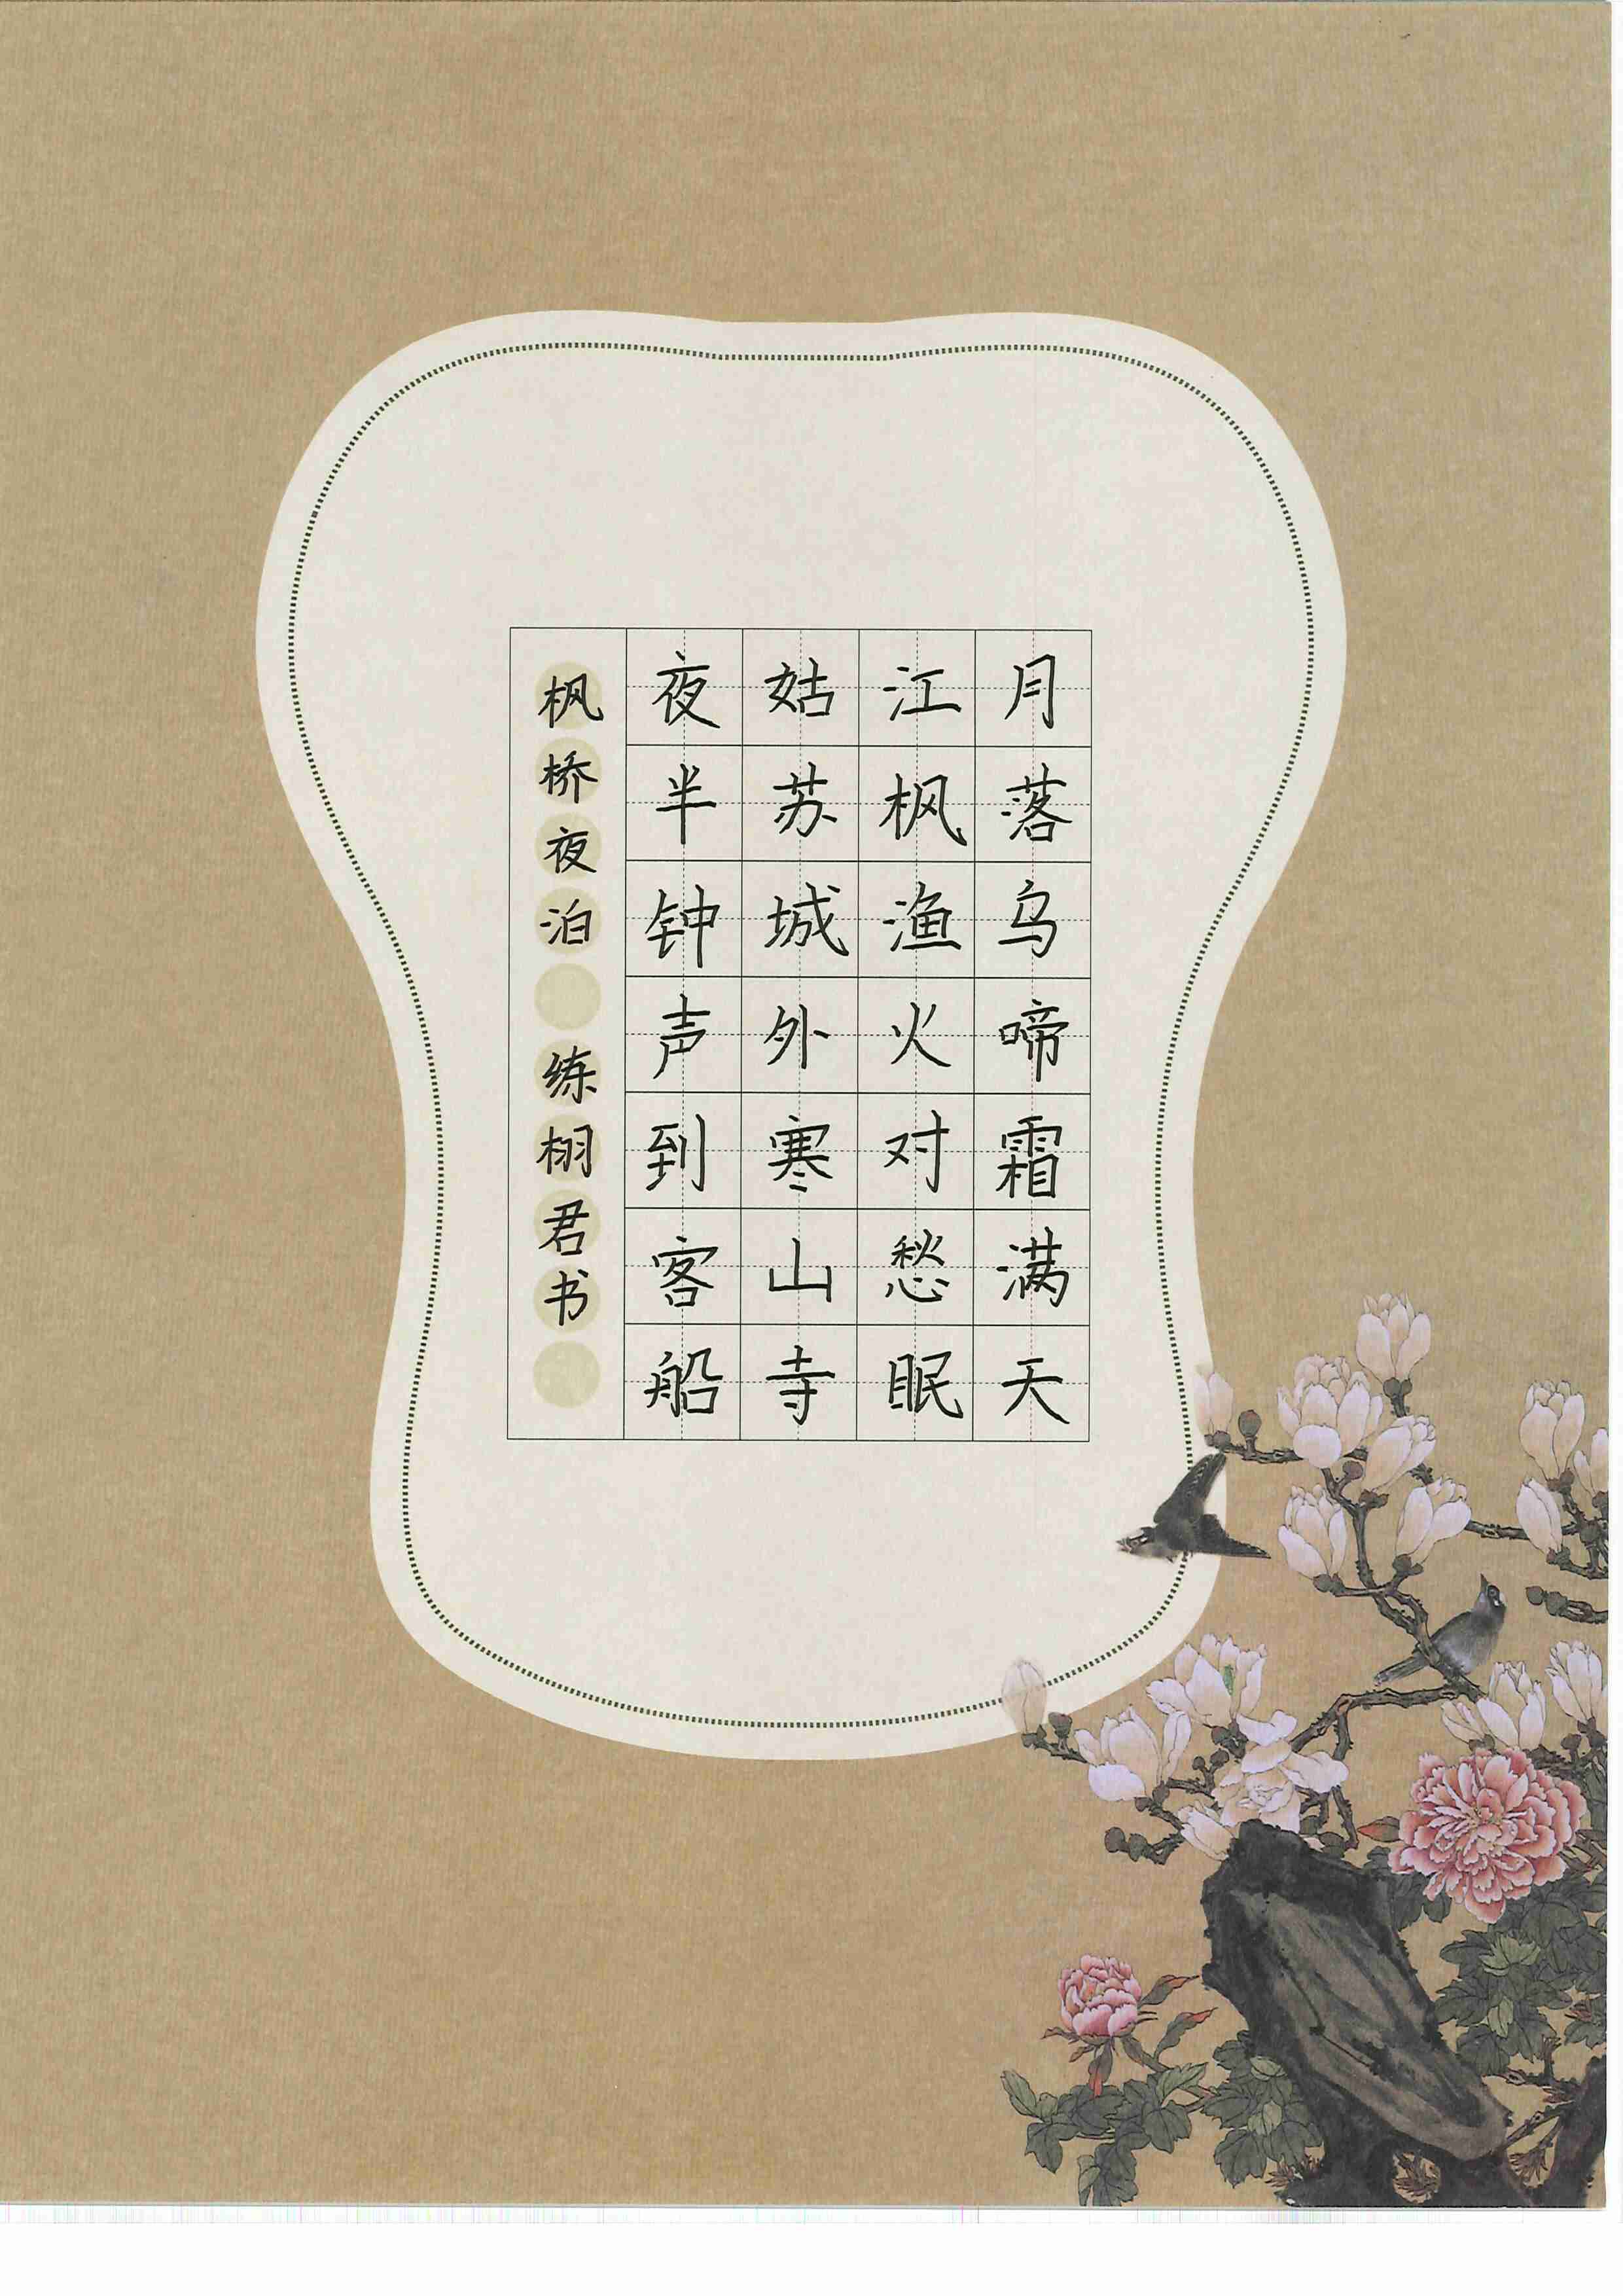 月落乌啼霜满天
江枫渔火对愁眠
姑苏城外寒山寺
夜半钟声到客船
枫桥夜泊 练栩君书